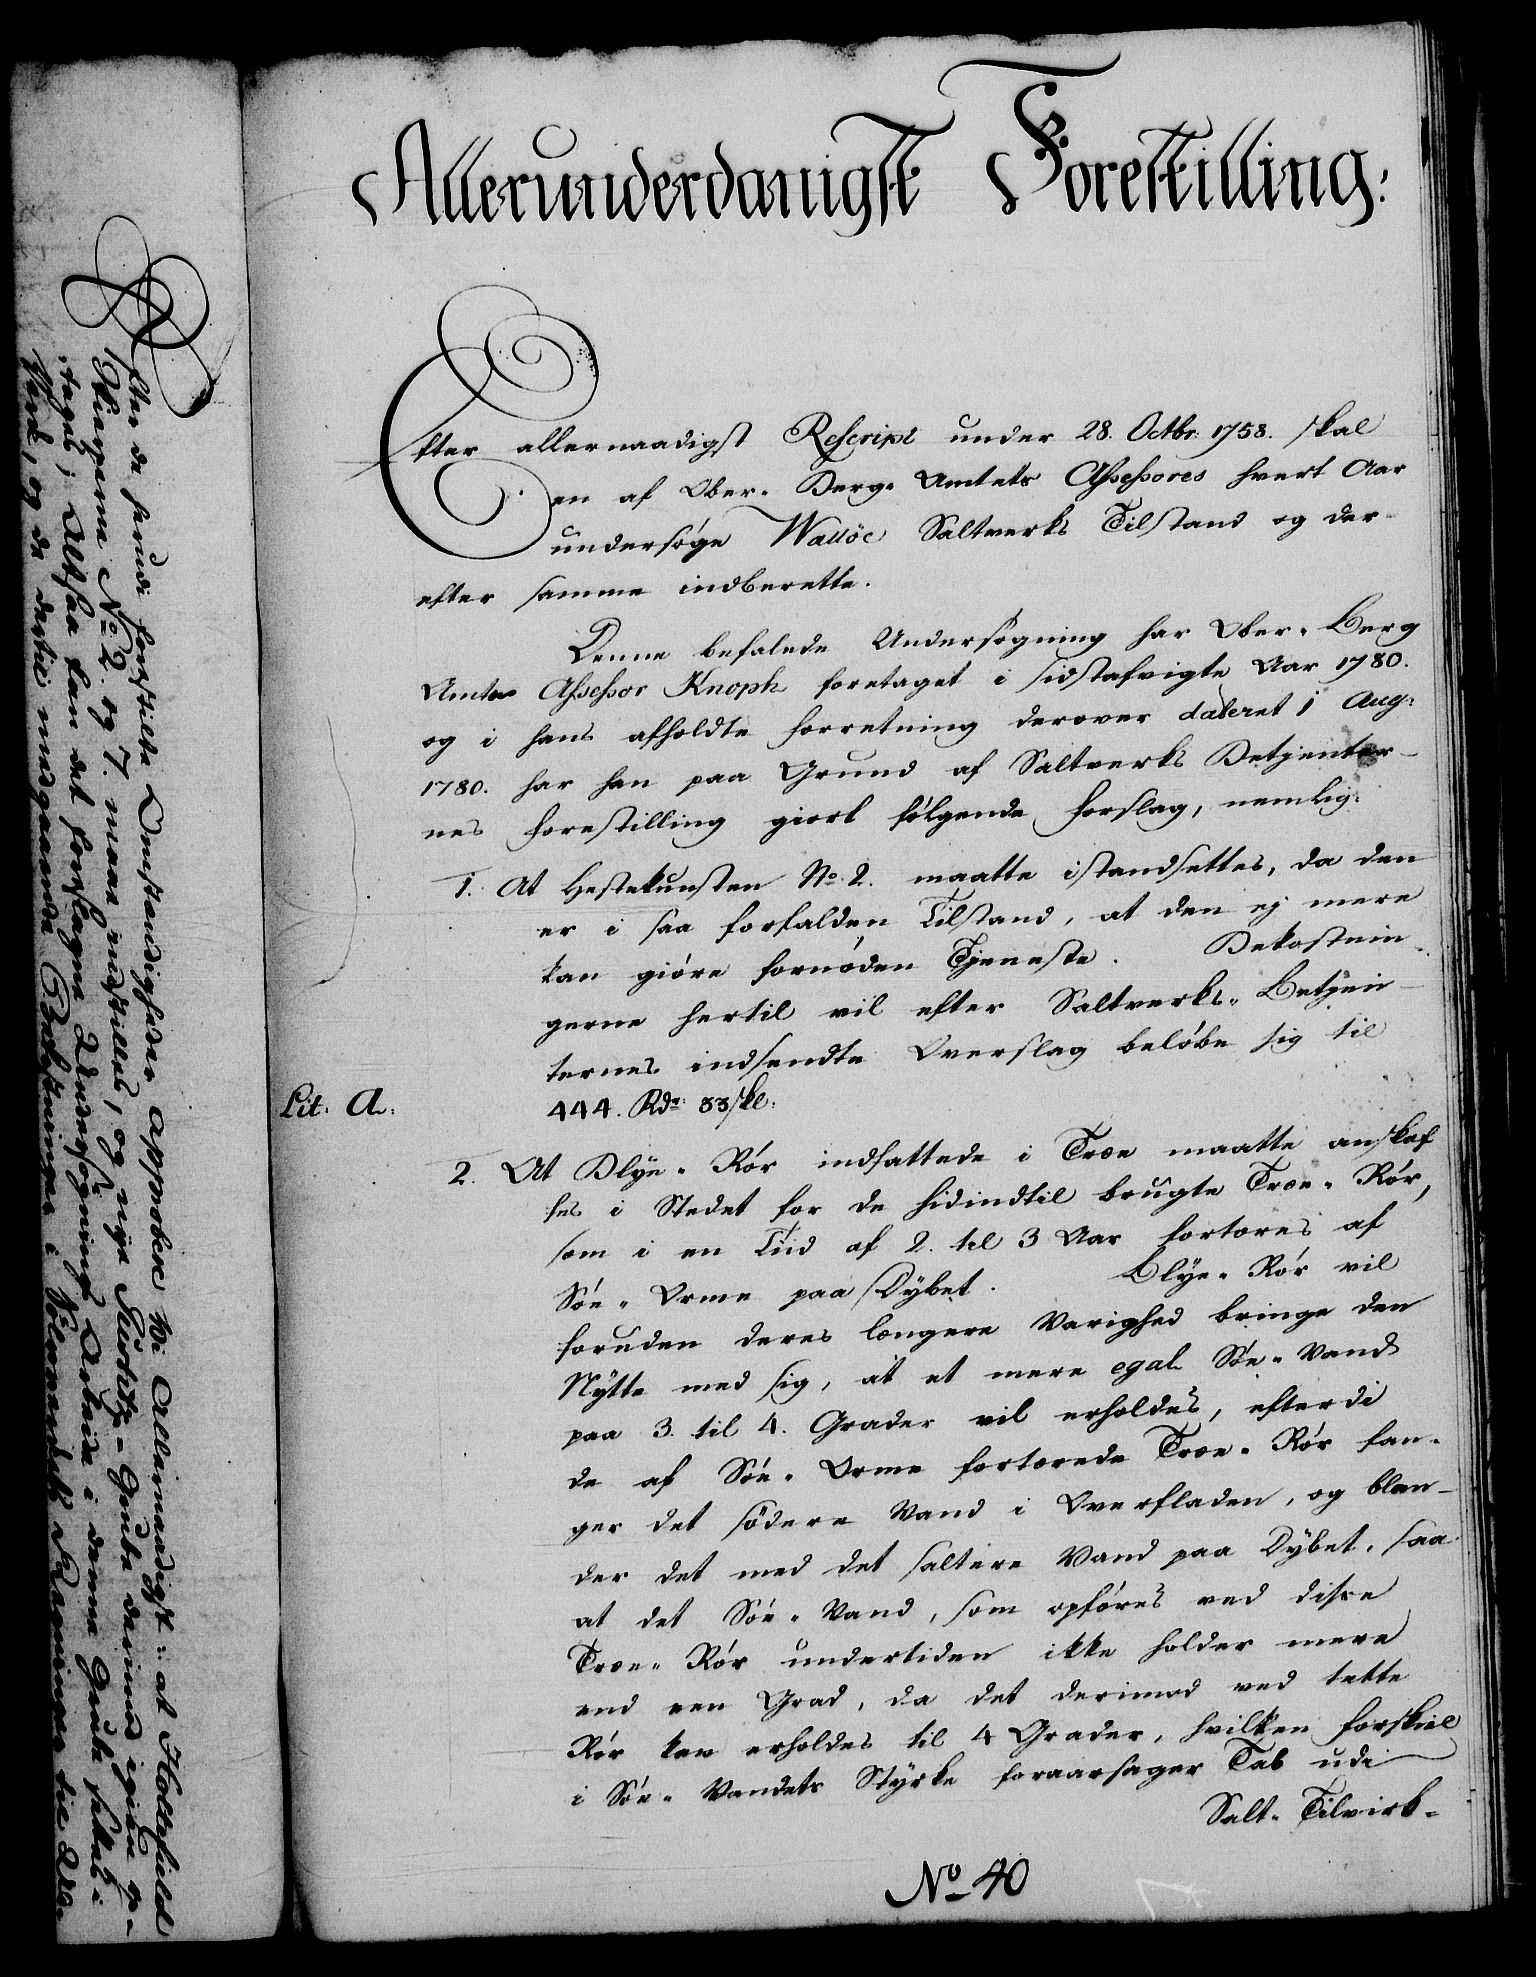 Allerunderdanigst Forestilling:
Efter allernaadigst Rescript under 28. Octbr: 1758. skal
en af Ober-Berg-Amtets Assessores hvert Aar
undersøge Walløe Saltverks Tilstand og der-
efter samme indberette.
Denne befalede Undersøgning har Ober-Berg
Amts Assessor Knoph foretaget i sidstafvigte Aar 1780.
og i hans afholdte Forretning derover dateret 1 Aug:
1780. har han paa Grund af Saltverks Betjenter-
nes Forestilling giort følgende Forslag, nemlig:
1. At Hestekunsten No. 2. maatte istandsettes, da den
er i saa forfalden Tilstand, at den ej mere
kan giøre fornøden Tjeneste. Bekostnin-
gerne hertil vil efter Saltverks-Betjen-
ternes indsendte Overslag beløbe sig til
Lit: A. 444. Rdr: 33 skl:
2. At Blye-Rør indfattede i Træe maatte anskaf
fes i Stedet for de hidindtil brugte Træe-Rør,
som i en Tiid af 2. til 3 Aar fortæres af
Søe-Orme paa Dybet. Blye-Rør vil
foruden deres længere Varighed bringe den
Nytte med sig, at et mere egal Søe-Vand
paa 3. til 4. Grader vil erholdes, efterdi
de af Søe-Orme fortærede Træe-Rør fan-
ger det sødere Vand i Overfladen, og blan-
der det med det saltere Vand paa Dybet, saa
at det Søe-Vand, som opføres ved disse
Træe-Rør undertiden ikke holder mere
end een Grad, da det derimod ved tette
Rør kan erholdes til 4 Grader, hvilken Forskiel
i Søe-Vandets Styrke foraarsager Tab udi
Salt-Tilvirk-
No 40
Efter de herudi forestilte Omstændigheder approbere Vi Allernaadigst: at Holtefield
Skiærperne No 2. og 7. maae indstilles, og nye
tages; Altsaa kan det foreslagne Undersøgnings Arbeide i denne Grube settes i
Værk, og de dertil medgaaende Bekostninger i